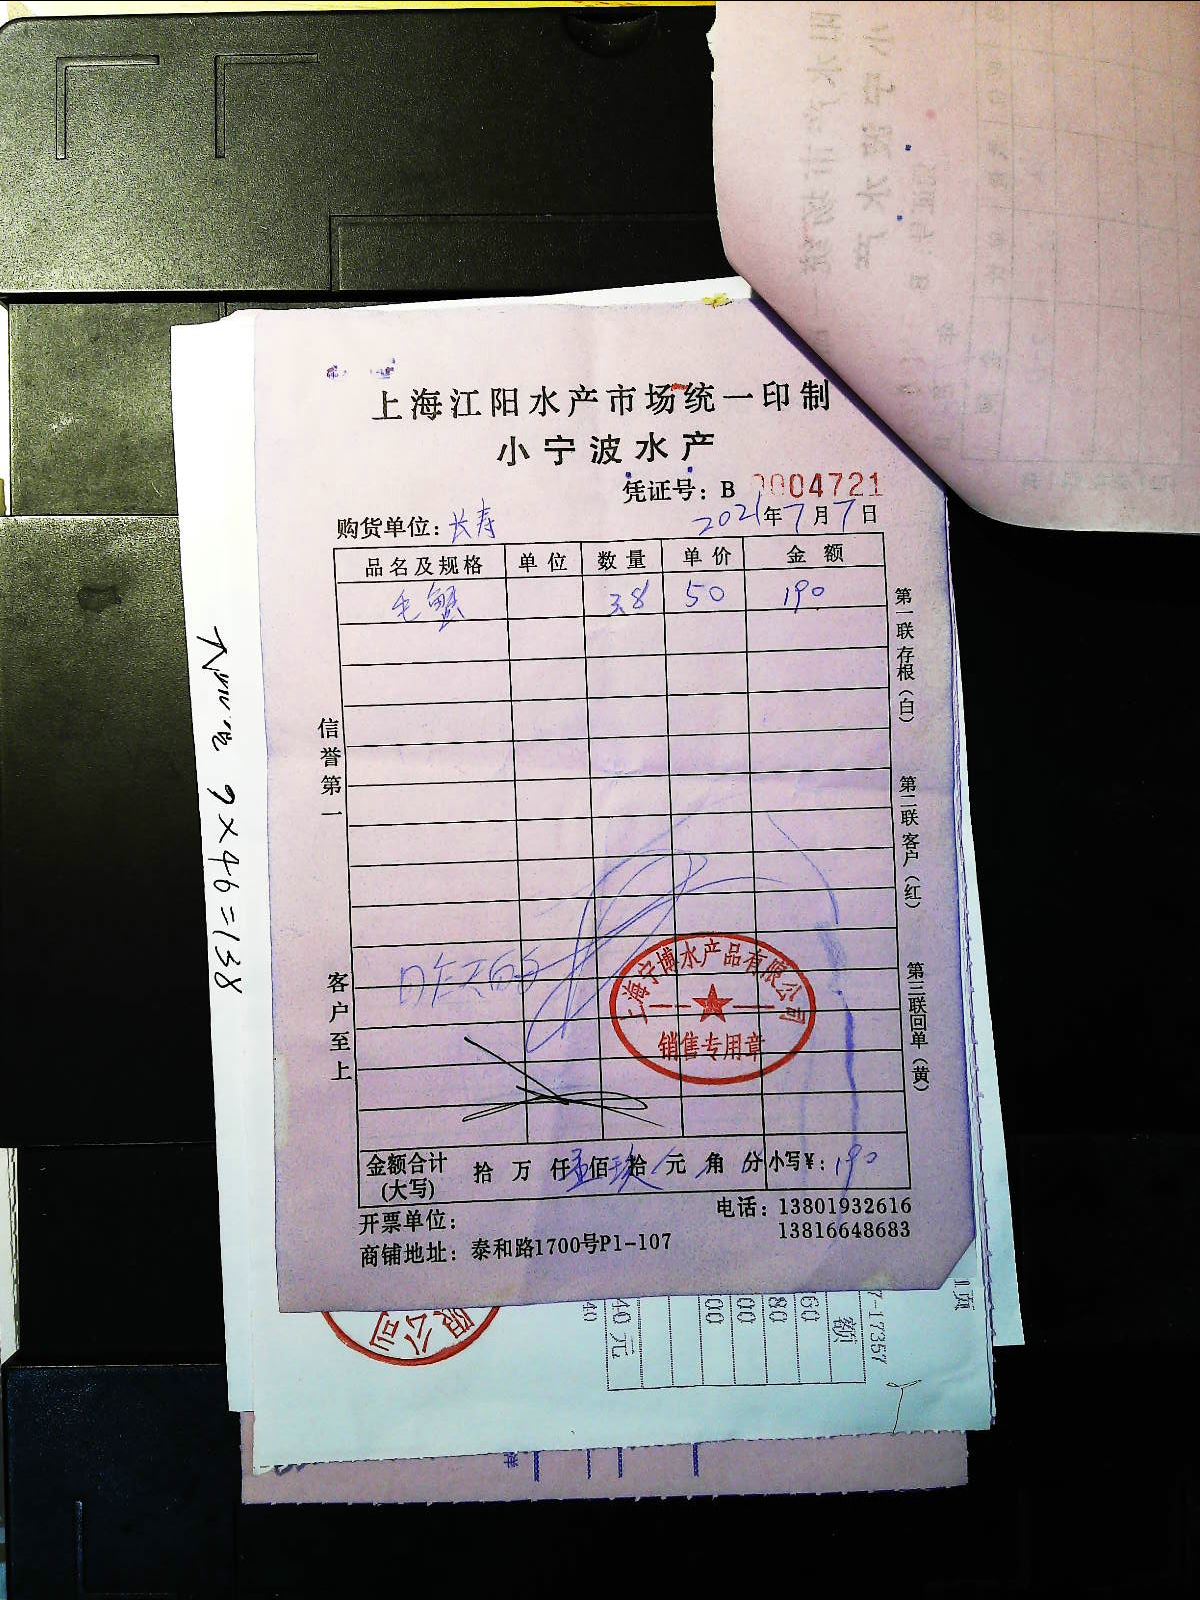 上海江阳水产市场统一印制
小宁波水产
凭证号：B 0004721
购货单位：长寿 2021年7月7日
品名及规格 单位 数量 单价 金额
毛蟹 3.8 50 190
信誉第一
客户至上
第一联存根（白）
第二联客户（红）
第三联回单（黄）
昨天的
上海宁博水产品有限公司
销售专用章
金额合计(大写) 拾 万 仟 壹佰 玖拾 元 角 分 小写￥：190
开票单位：
电话：13801932616
13816648683
商铺地址：泰和路1700号P1-107
9×46=138
限公司
7-17357
额
60
80
00
00
40元
40